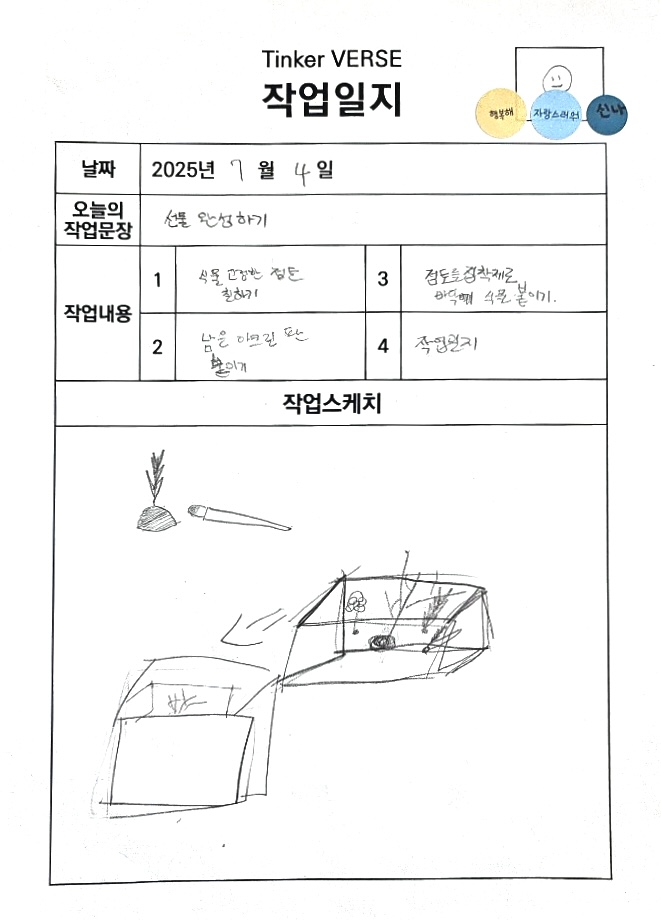 Tinker VERSE
작업일지
행복해
자랑스러워
신나
날짜
2025년 7월 4일
오늘의
작업문장
선물 완성하기
작업내용
1
식물 고정한 점토
칠하기
2
남은 아크린 판
붙이기
3
점토를 접착제로
바닥에 식물 붙이기.
4
작업일지
작업스케치